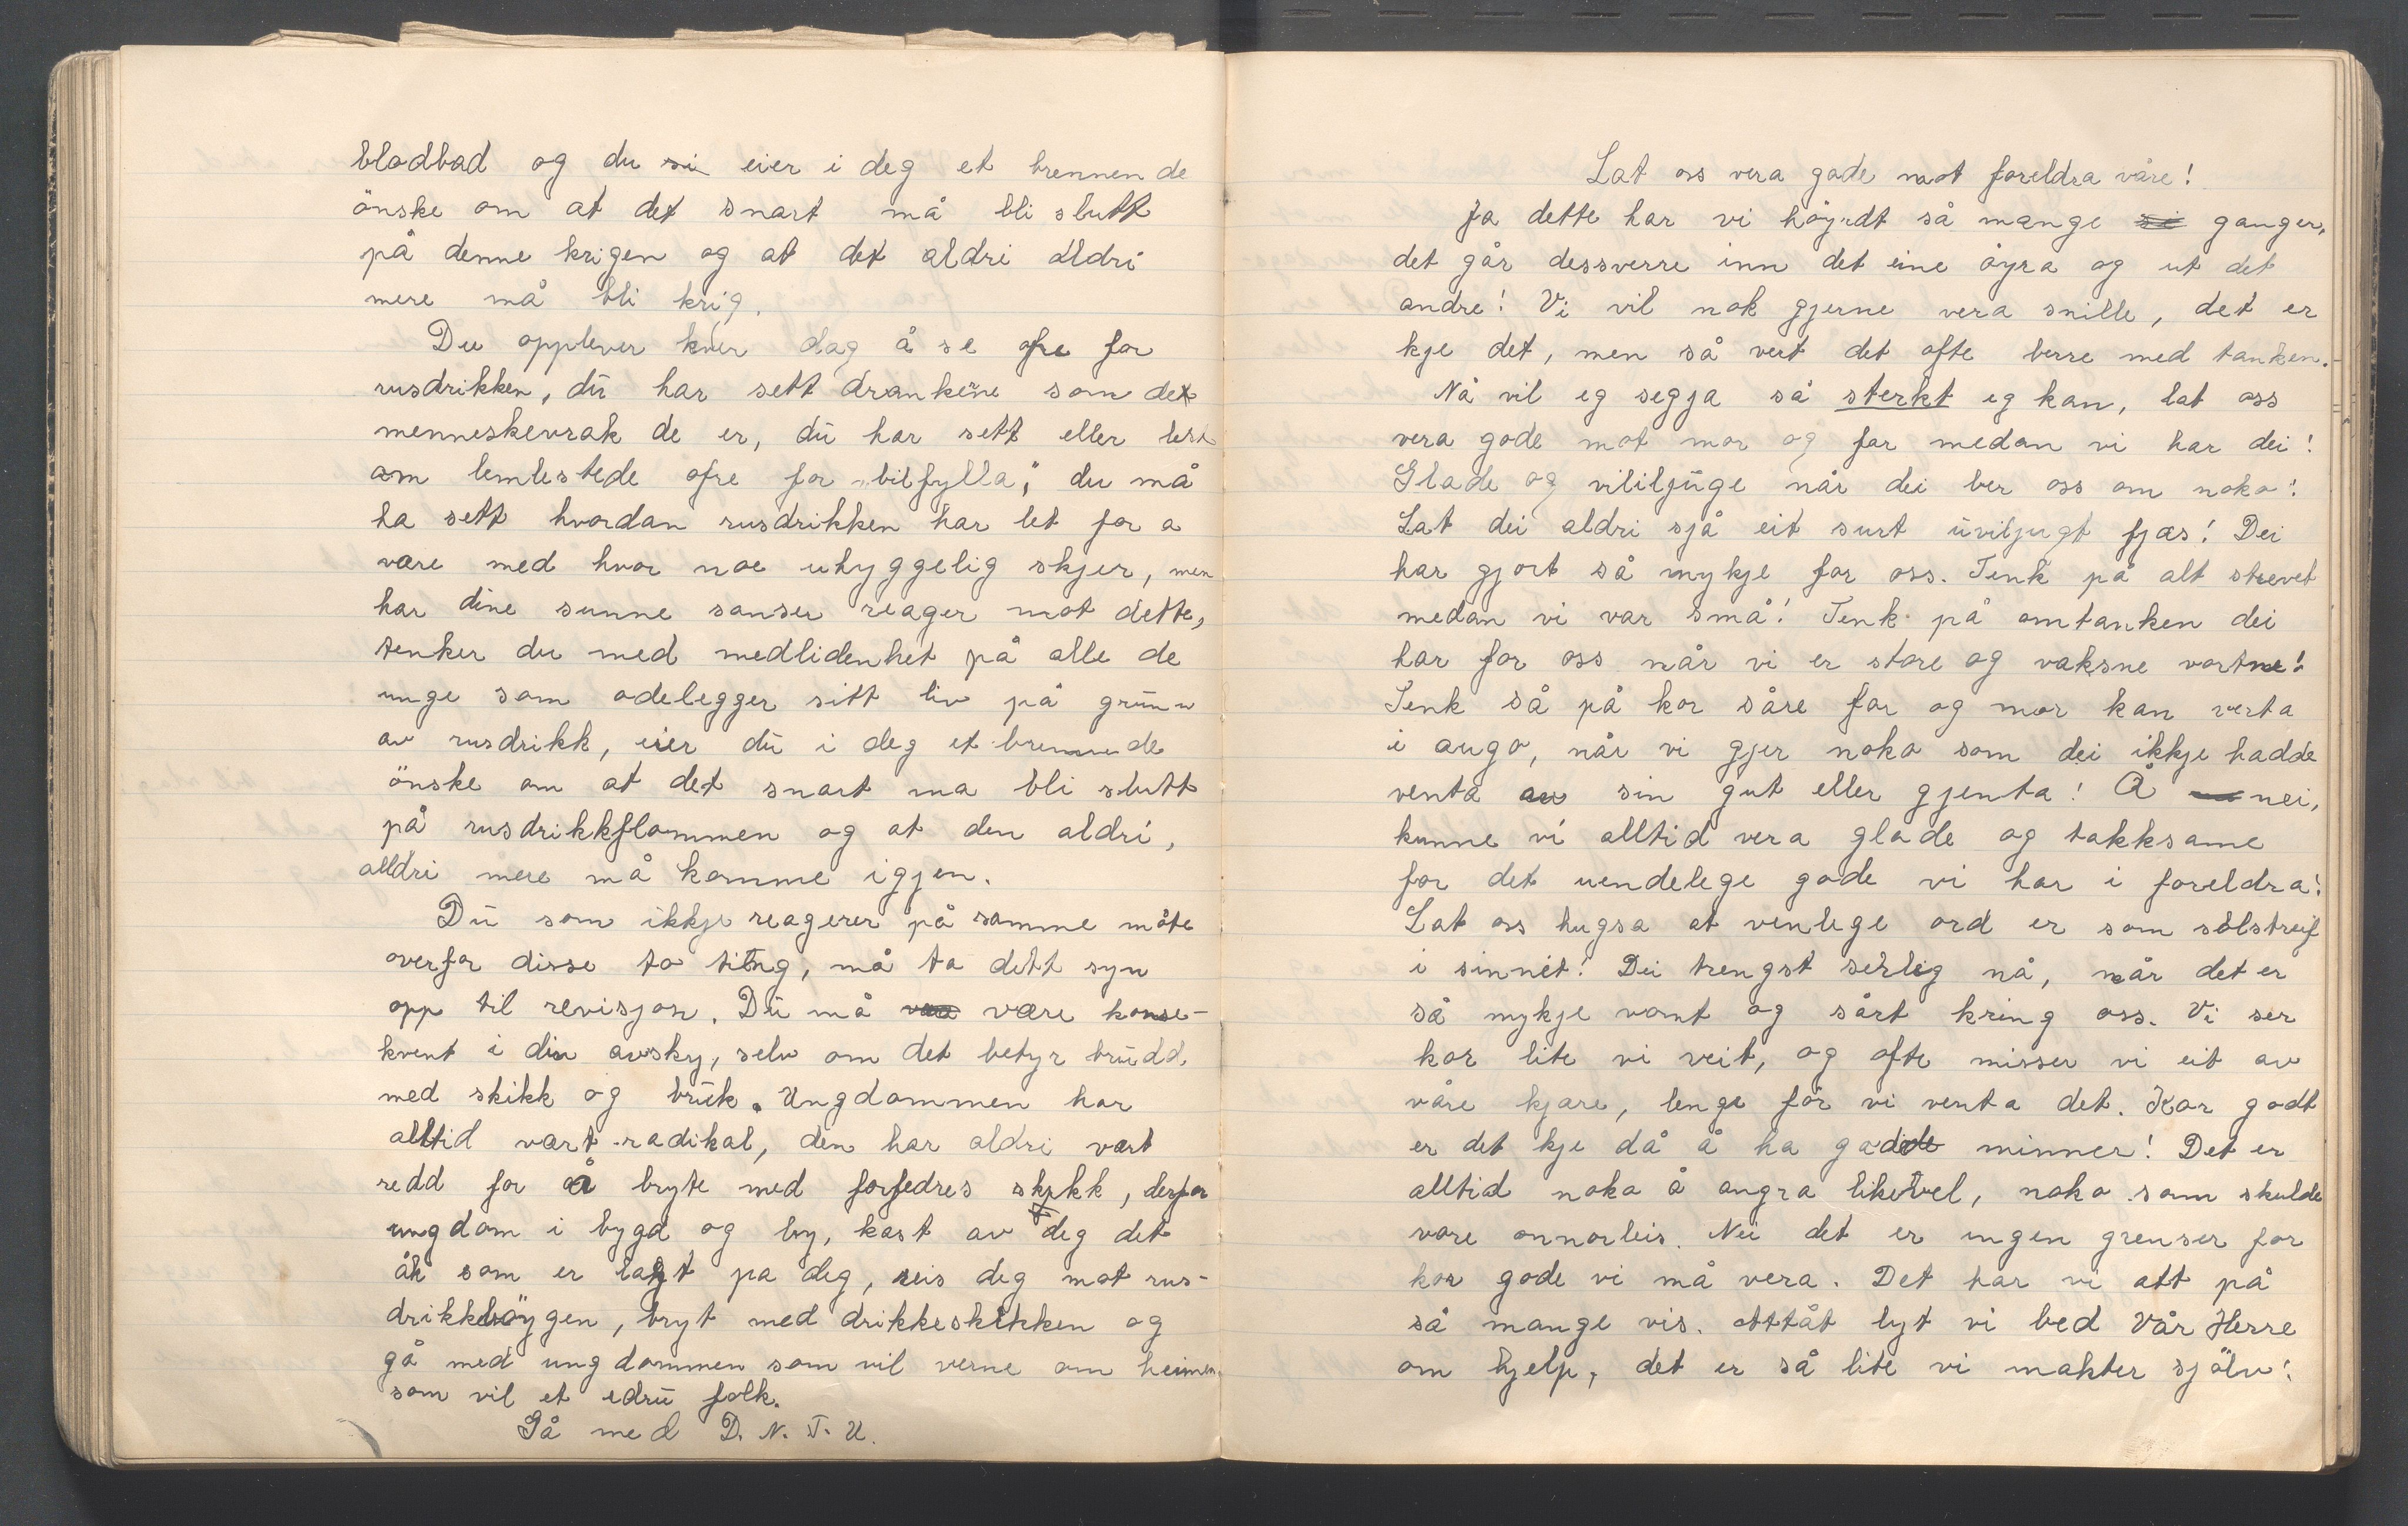 blodbad og du si eier i deg et brennende
önske om at det snart må bli slutt
på denne krigen og at det aldri aldri
mere må bli krig.
Du opplever kver dag å se ofre for
rusdrikken, du har sett drankerne som det
menneskevrak de er, du har sett eller lest
om lemlestede ofre for "bilfylla", du må
ha sett hvordan rusdrikken har let for a
være med hvor noe uhyggelig skjer, men
har dine sunne sanser reager mot dette,
tenker du med medlidenhet på alle de
unge som odelegger sitt liv på grunn
av rusdrikk, eier du i deg et brennende
önske om at det snart ma bli slutt
på rusdrikkflommen og at den aldri,
aldri mere må komme igjen.
Du som ikkje reagerer på samme måte
overfor disse to ting, må ta dett syn
opp til revisjon. Du må være konse-
kvent i din avsky, selv om det betyr brudd
med skikk og bruk. Ungdommen har
alltid vært radikal, den har aldri vært
redd for å bryte med forfedres skikk, derfor
ungdom i bygd og by, kast av deg det
åk som er lagt pa deg, reis deg mot rus-
drikkböygen, bryt med drikkeskikken og
gå med ungdommen som vil verne om heimen,
som vil et edru folk.
Gå med D. N. T. U.
Lat oss vera gode mot foreldra våre!
Ja dette har vi höyrdt så mange si ganger,
det går dessverre inn det eine öyra og ut det
andre! Vi vil nok gjerne vera snille, det er
kje det, men så vert det ofte berre med tanken.
Nå vil eg segja så sterkt eg kan, lat oss
vera gode mot mor og far medan vi har dei!
Glade og vililjuge når dei ber oss om noko!
Lat dei aldri sjå eit surt uviljugt fjæs! Dei
har gjort så mykje for oss. Tenk på alt strevet
medan vi var små! Tenk på omtanken dei
har for oss når vi er store og vaksne vortne!
Tenk så på kor såre far og mor kan verta
i augo, når vi gjer noko som dei ikkje hadde
venta av sin gut eller gjenta! Å nei,
kunne vi alltid vera glade og takksame
for det uendelege gode vi har i foreldra!
Lat oss hugsa at venlege ord er som solstreif
i sinnet! Dei trengst serleg nå, når det er
så mykje vomt og sårt kring oss. Vi ser
kor lite vi veit, og ofte misser vi eit av
våre kjære, lenge för vi venta det. Kor godt
er det kje då å ha gode minner! Det er
alltid noko å angra likevel, noko som skulde
vore onnorleis. Nei det er ingen grenser for
kor gode vi må vera. Det har vi att på
så mange vis. attåt lyt vi bed Vår Herre
om hjelp, det er så lite vi makter sjölv!